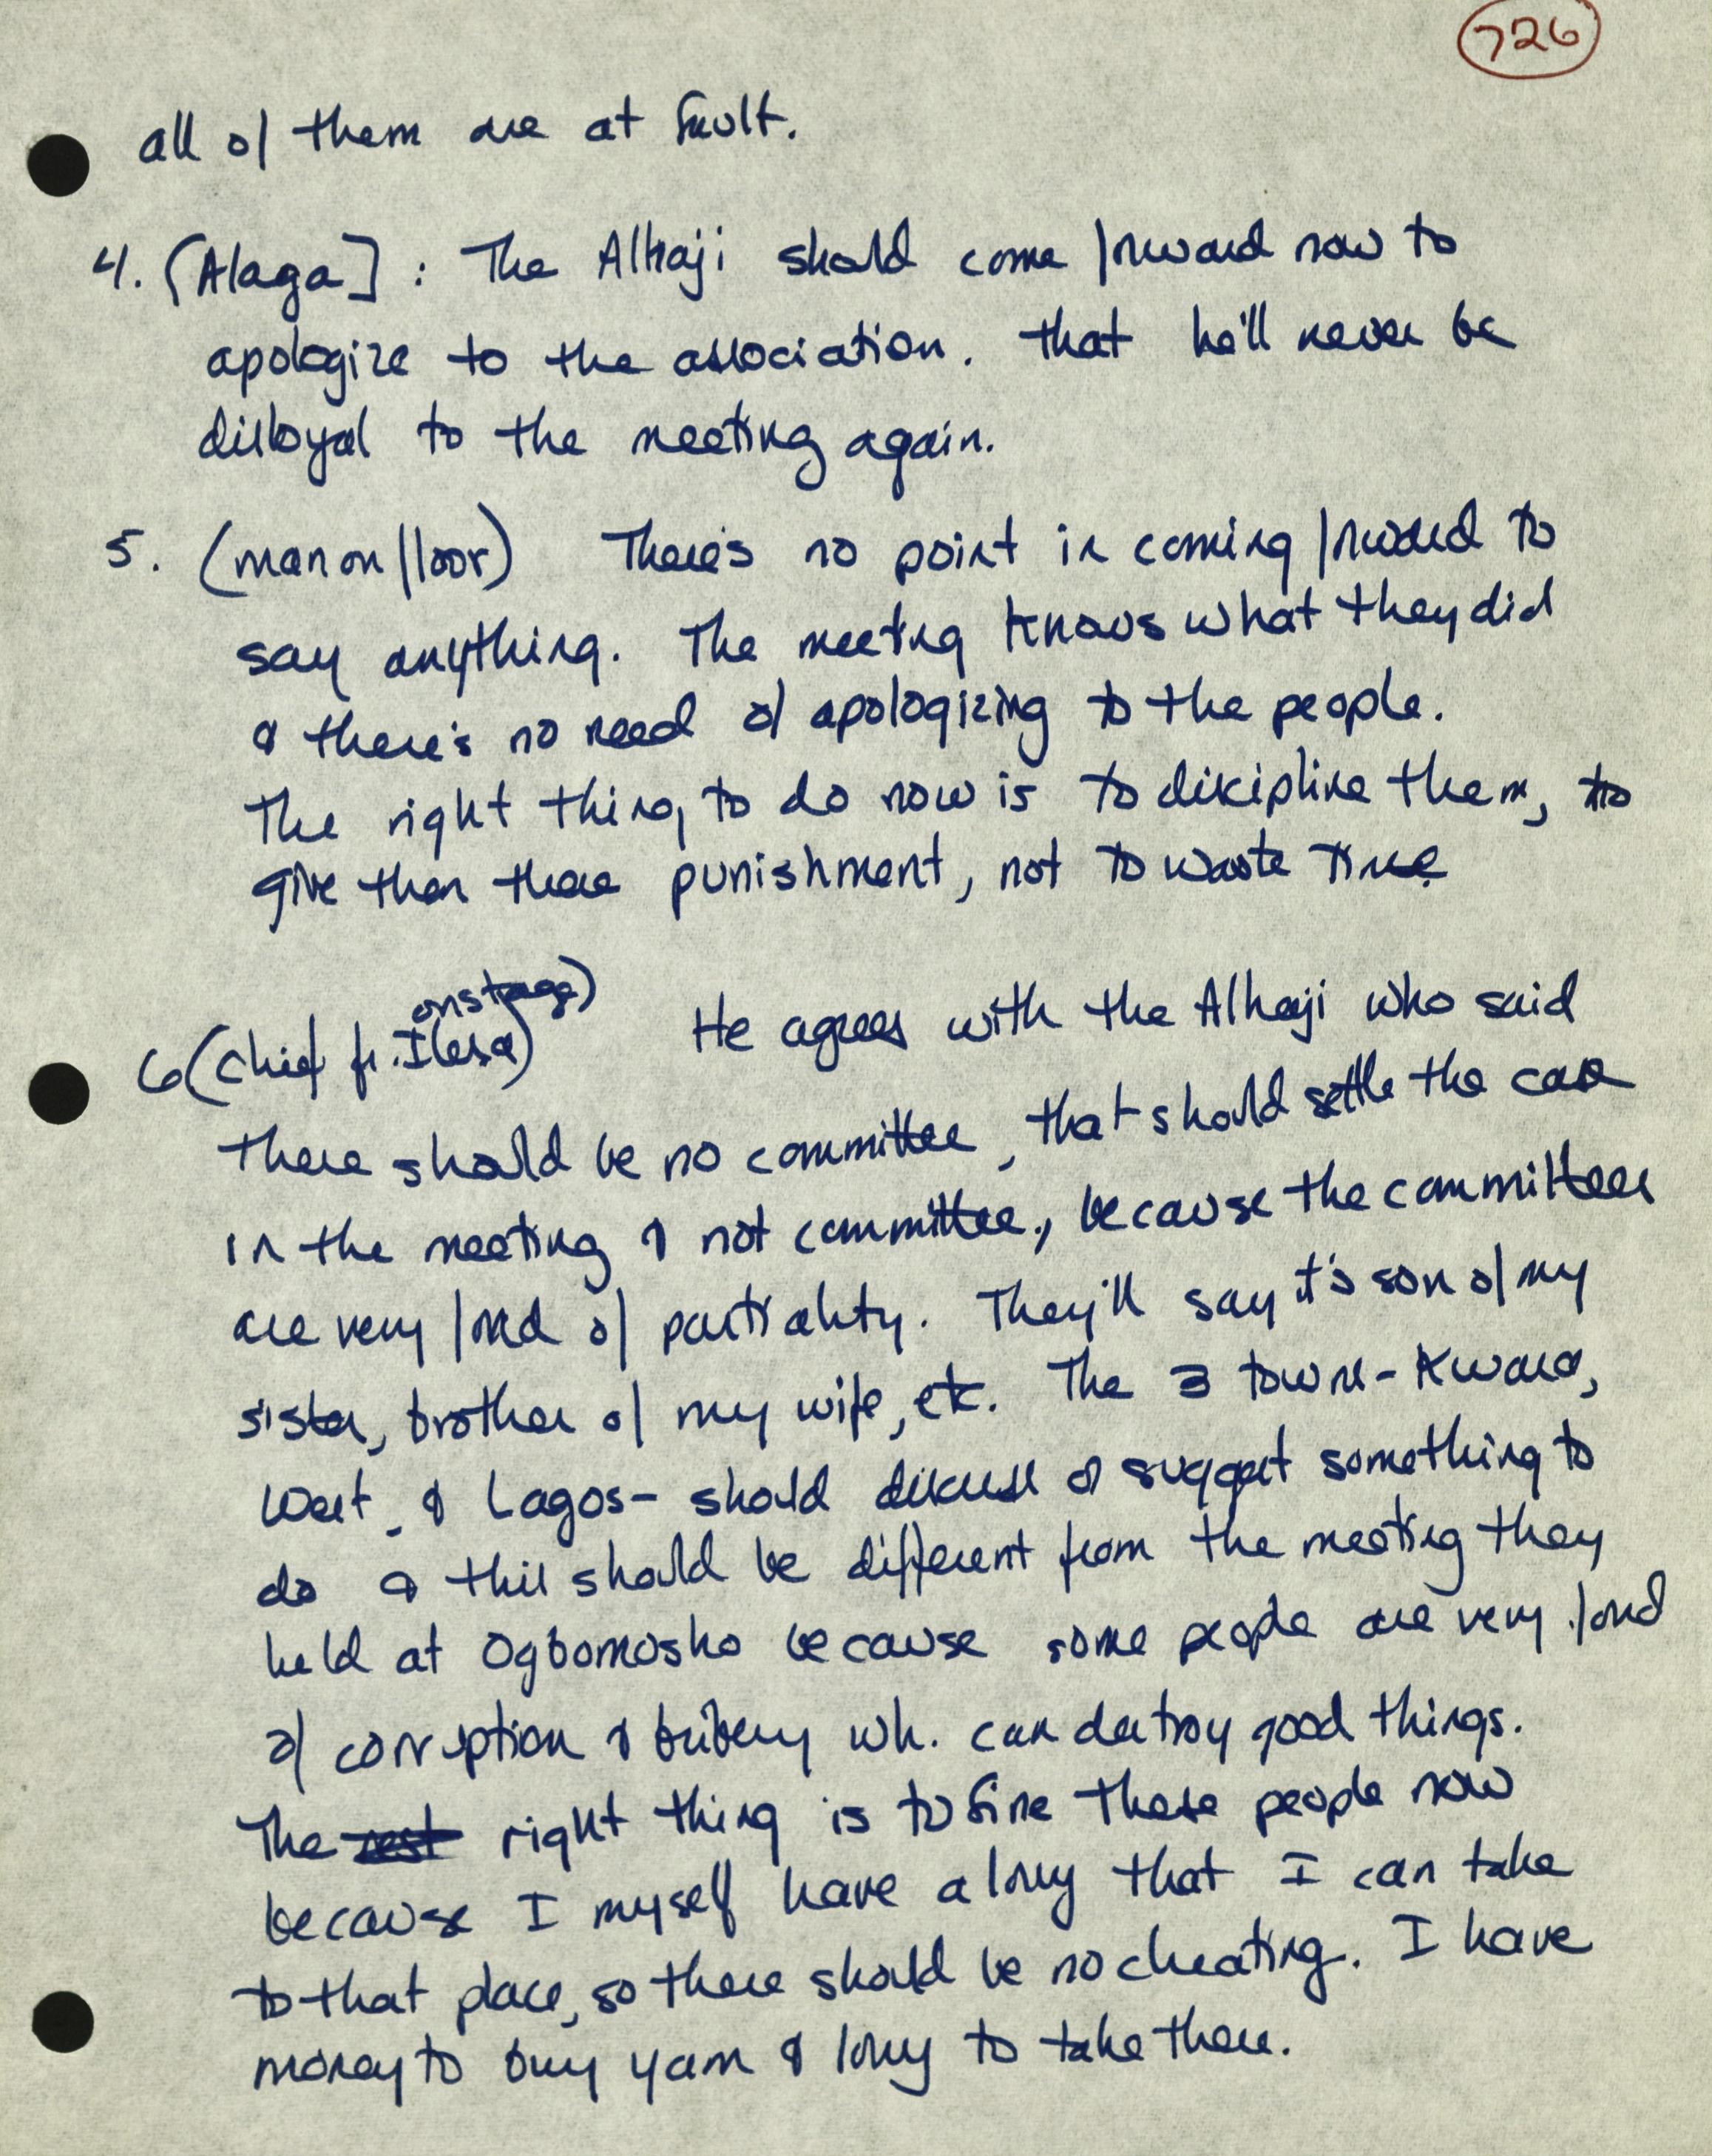 726
all of them are at fault.
4. [Alaga] : The Alhaji should come forward now to
apologize to the association. that he'll never be
disloyal to the meeting again.
5. (man on floor) There's no point in coming forward to
say anything. The meeting knows what they did
& there's no need of apologizing to the people.
The right thing to do now is to discipline them, to
give them there punishment, not to waste time
onstage)
6 (chief fr. Ilesa) He agrees with the Alhaji who said
there should be no committee, that should settle the case
in the meeting & not committee, because the committees
are very fond of partiality. They'll say it's son of my
sister, brother of my wife, etc. The 3 towns - Kwara,
West & Lagos - should discuss & suggest something to
do & this should be different from the meeting they
held at Ogbomosho because some people are very fond
of corruption & bribery wh. can destroy good things.
The rest right thing is to fine these people now
because I myself have a lorry that I can take
to that place, so there should be no cheating. I have
money to buy yam & lorry to take there.